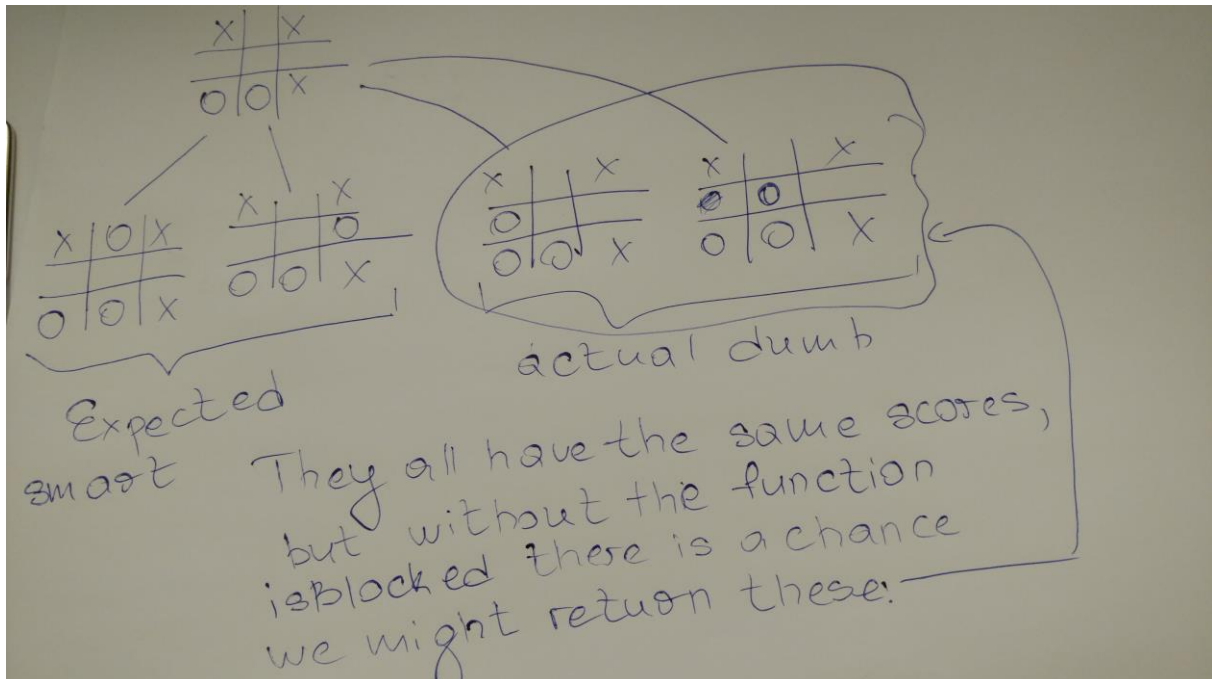 X | | X
O | O | X
X | O | X
O | O | X
X | | X
| | O
O | O | X
X | | X
O | |
O | O | X
X | | X
O | O |
O | O | X
Expected
smart
actual dumb
They all have the same scores,
but without the function
isBlocked there is a chance
we might return these.